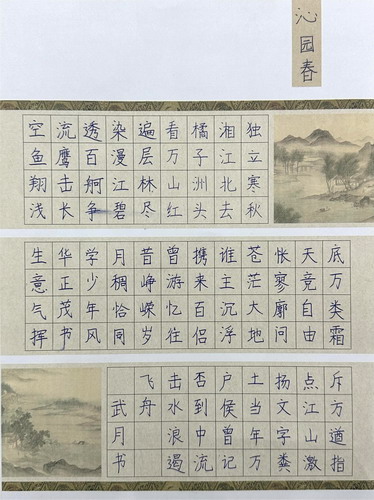 沁园春
独立寒秋
湘江北去
橘子洲头
看万山红
遍层林尽
染漫江碧
透百舸争
流鹰击长
空鱼翔浅
底万类霜
天竞自由
怅寥廓问
苍茫大地
谁主沉浮
携来百侣
曾游忆往
昔峥嵘岁
月稠恰同
学少年风
华正茂书
生意气挥
斥方遒指
点江山激
扬文字粪
土当年万
户侯曾记
否到中流
击水浪遏
飞舟
武月书